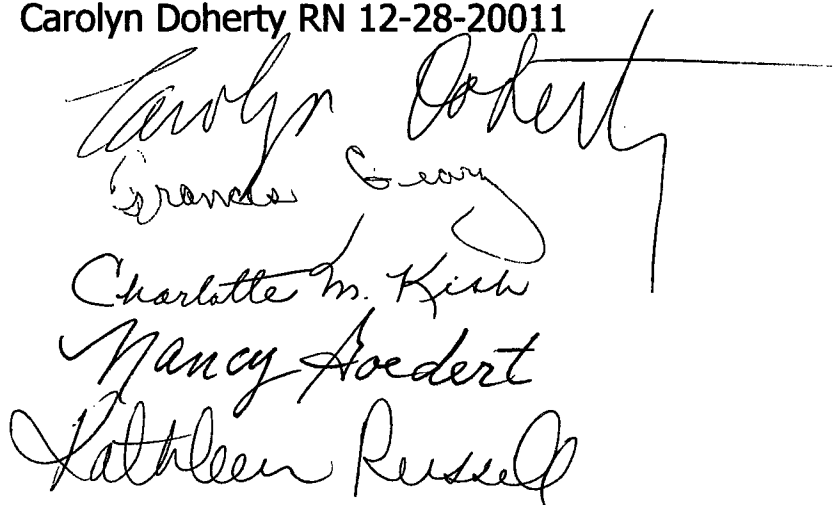 Carolyn Doherty RN 12-28-20011
Carolyn Doherty
Francis Geary
Charlotte M. Kish
Nancy Goedert
Kathleen Russell